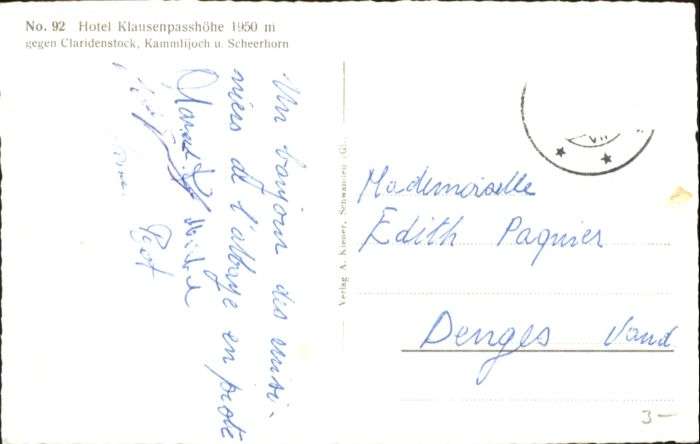 No. 92 Hotel Klausenpasshöhe 1950 m
gegen Claridenstock, Kammlijoch u. Scheerhorn
Un bonjour des musi-
ciens de l'abbaye en
Michel
Verlag A. Kieser, Schwanden (Gl.)
VII
Mademoiselle
Edith Paquier
Denges Vaud
3 —